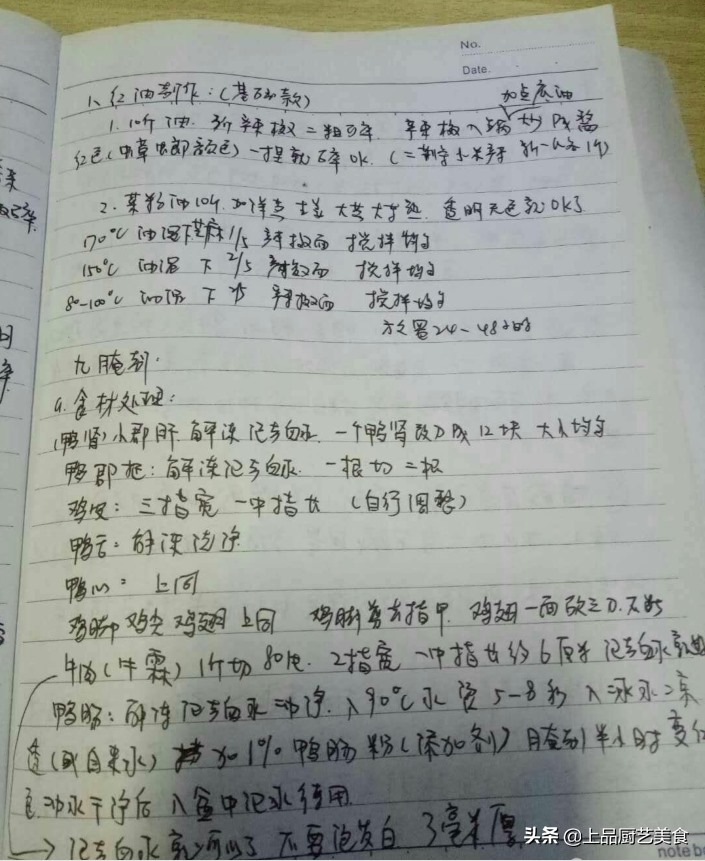 No.
Date.
1、红油制作：（基础款）
加点底油
1. 10斤油. 3斤辣椒二粗 辣椒入锅炒成酱
红色（甘草 颜色）一捏就碎OK.（二荆 小米辣 各1斤）
2. 菜籽油10斤. 加洋葱 生姜 大葱 大 透明无色就OK了
170°C 油温下芝麻 1/5 辣椒面 搅拌均匀
150°C 油温 下 2/5 辣椒面 搅拌均匀
80-100°C 油温 下 2/5 辣椒面 搅拌均匀
放置24-48小时
九腌制.
a. 食材处理：
（鸭肾）小郡肝 解冻 泡去血水. 一个鸭肾改刀成12块 大小均匀
鸭郡把：解冻泡去血水. 一根切二极
鸡皮：三指宽 一中指长（自行调整）
鸭舌：解冻洗净.
鸭心：上同
鸡脚 鸡尖 鸡翅 上同 鸡脚剪去指甲. 鸡翅一面改三刀.不断
牛肉（牛霖）1斤切80片. 2指宽 一中指长约6厘米 泡去血水
鸭肠：解冻泡去血水 冲净. 入90°C水烫5-8秒 入冰水
透（或自来水） 加1% 鸭肠粉（添加剂）腌制半小时 变红
色.冲水干净后 入盒中泡水待用.
→ 泡去血水就可以了 不要泡发白 3毫米厚
头条 @上品厨艺美食
note b